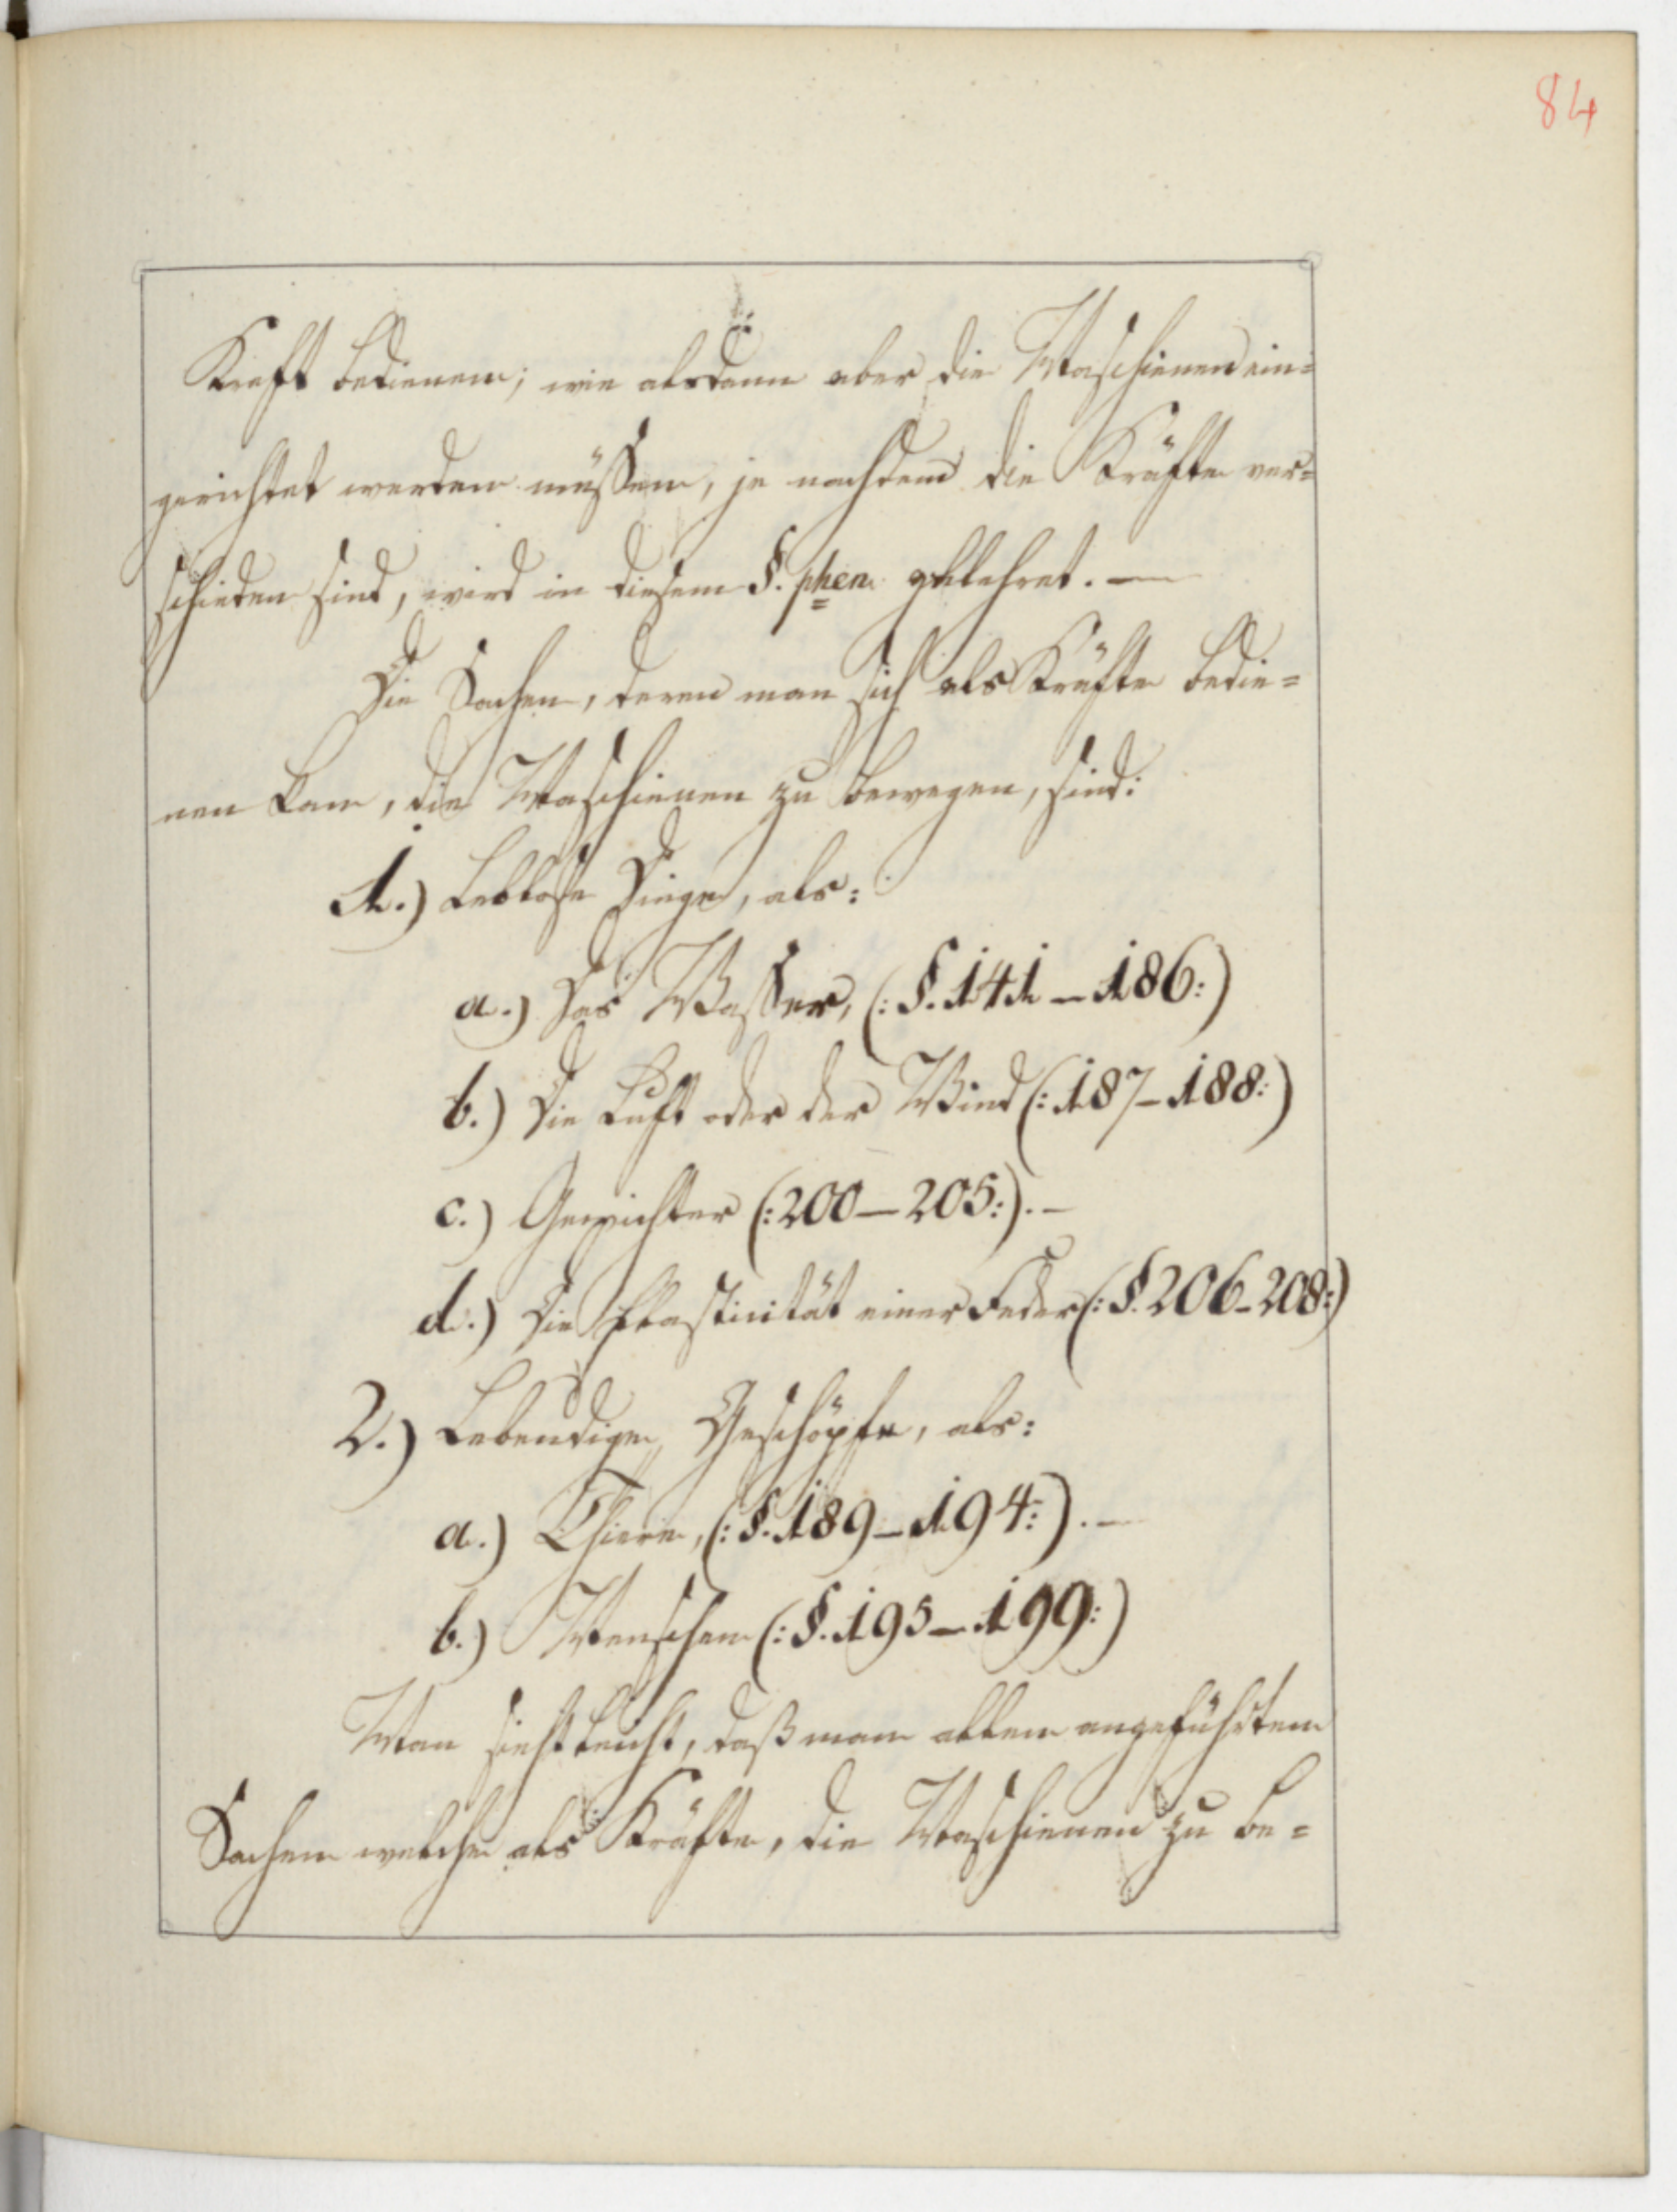 84
Kraft bedienen; wie alsdann aber die Maschienen ein=
gerichtet werden müssen, je nachdem die Kräfte ver=
schieden sind, wird in diesem §. phen gelehret. —
Die Sachen, deren man sich als Kräfte bedie=
nen kan, die Maschienen zu bewegen, sind:
1.) Leblose Dinge, als:
a.) Das Wasser, (: §. 141 — 186:)
b.) Die Luft oder der Wind (: 187 — 188:)
c.) Gewichter (: 200 — 205:). —
d.) Die Elasticität einer Feder (: §. 206 - 208:)
2.) Lebendige Geschöpfe, als:
a.) Thiere, (: §. 189 — 194:). —
b.) Menschen (: §. 195 — 199:)
Man sieht leicht, daß man allen angeführten
Sachen welche als Kräfte, die Maschienen zu be=